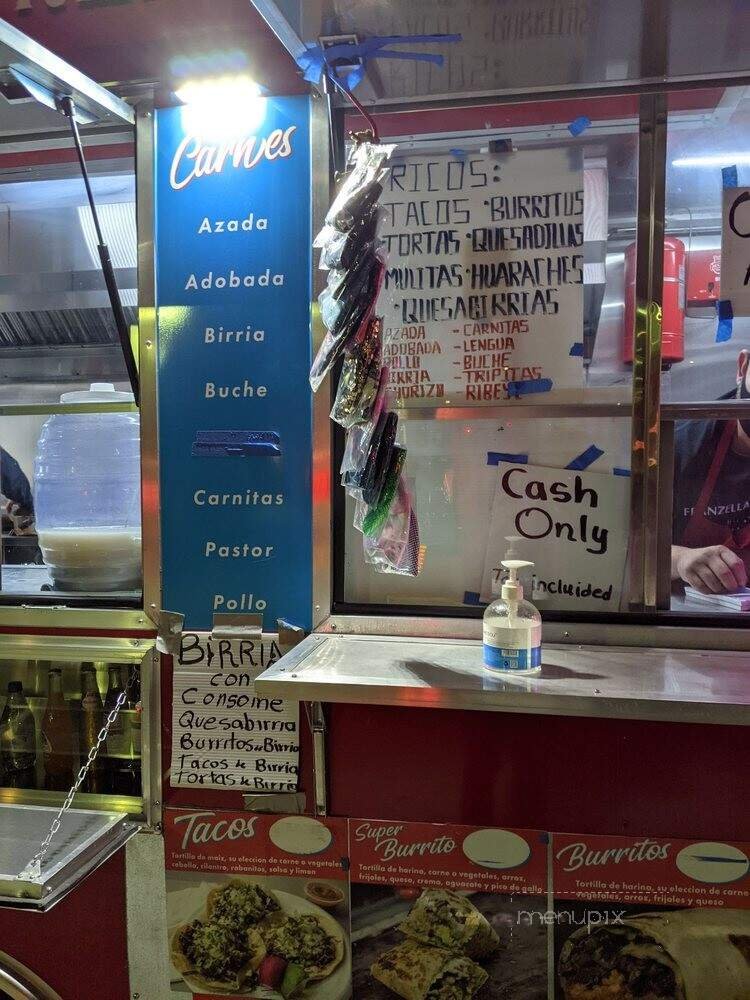 Carnes
Azada
Adobada
Birria
Buche
Carnitas
Pastor
Pollo
RICOS:
TACOS •BURRITOS
TORTAS •QUESADILLAS
MULITAS•HUARACHES
•QUESABIRRIAS
AZADA - CARNITAS
ADOBADA - LENGUA
POLLO - BUCHE
BIRRIA - TRIPITAS
CHORIZO - RIBEYE
Cash
Only
Tax incluided
FRANZELLA
BIRRIA
con
Consome
Quesabirria
Burritos de Birria
Tacos de Birria
Tortas de Birria
Tacos
Tortilla de maiz, su eleccion de carne o vegetales
cebollo, cilantro, rabanitos, salsa y limon
Super
Burrito
Tortilla de harina, carne o vegetales, arroz,
frijoles, queso, crema, aguacate y pico de gallo
Burritos
Tortilla de harina, su eleccion de carne
o vegetales, arroz, frijoles y queso
menupix